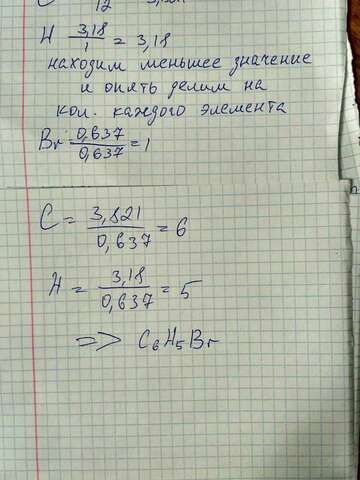 12
H 3,18/1 = 3,18
находим меньшее значение
и опять делим на
кол. каждого элемента
Br = 0,637/0,637 = 1
C = 3,821/0,637 = 6
H = 3,18/0,637 = 5
=> C₆H₅Br